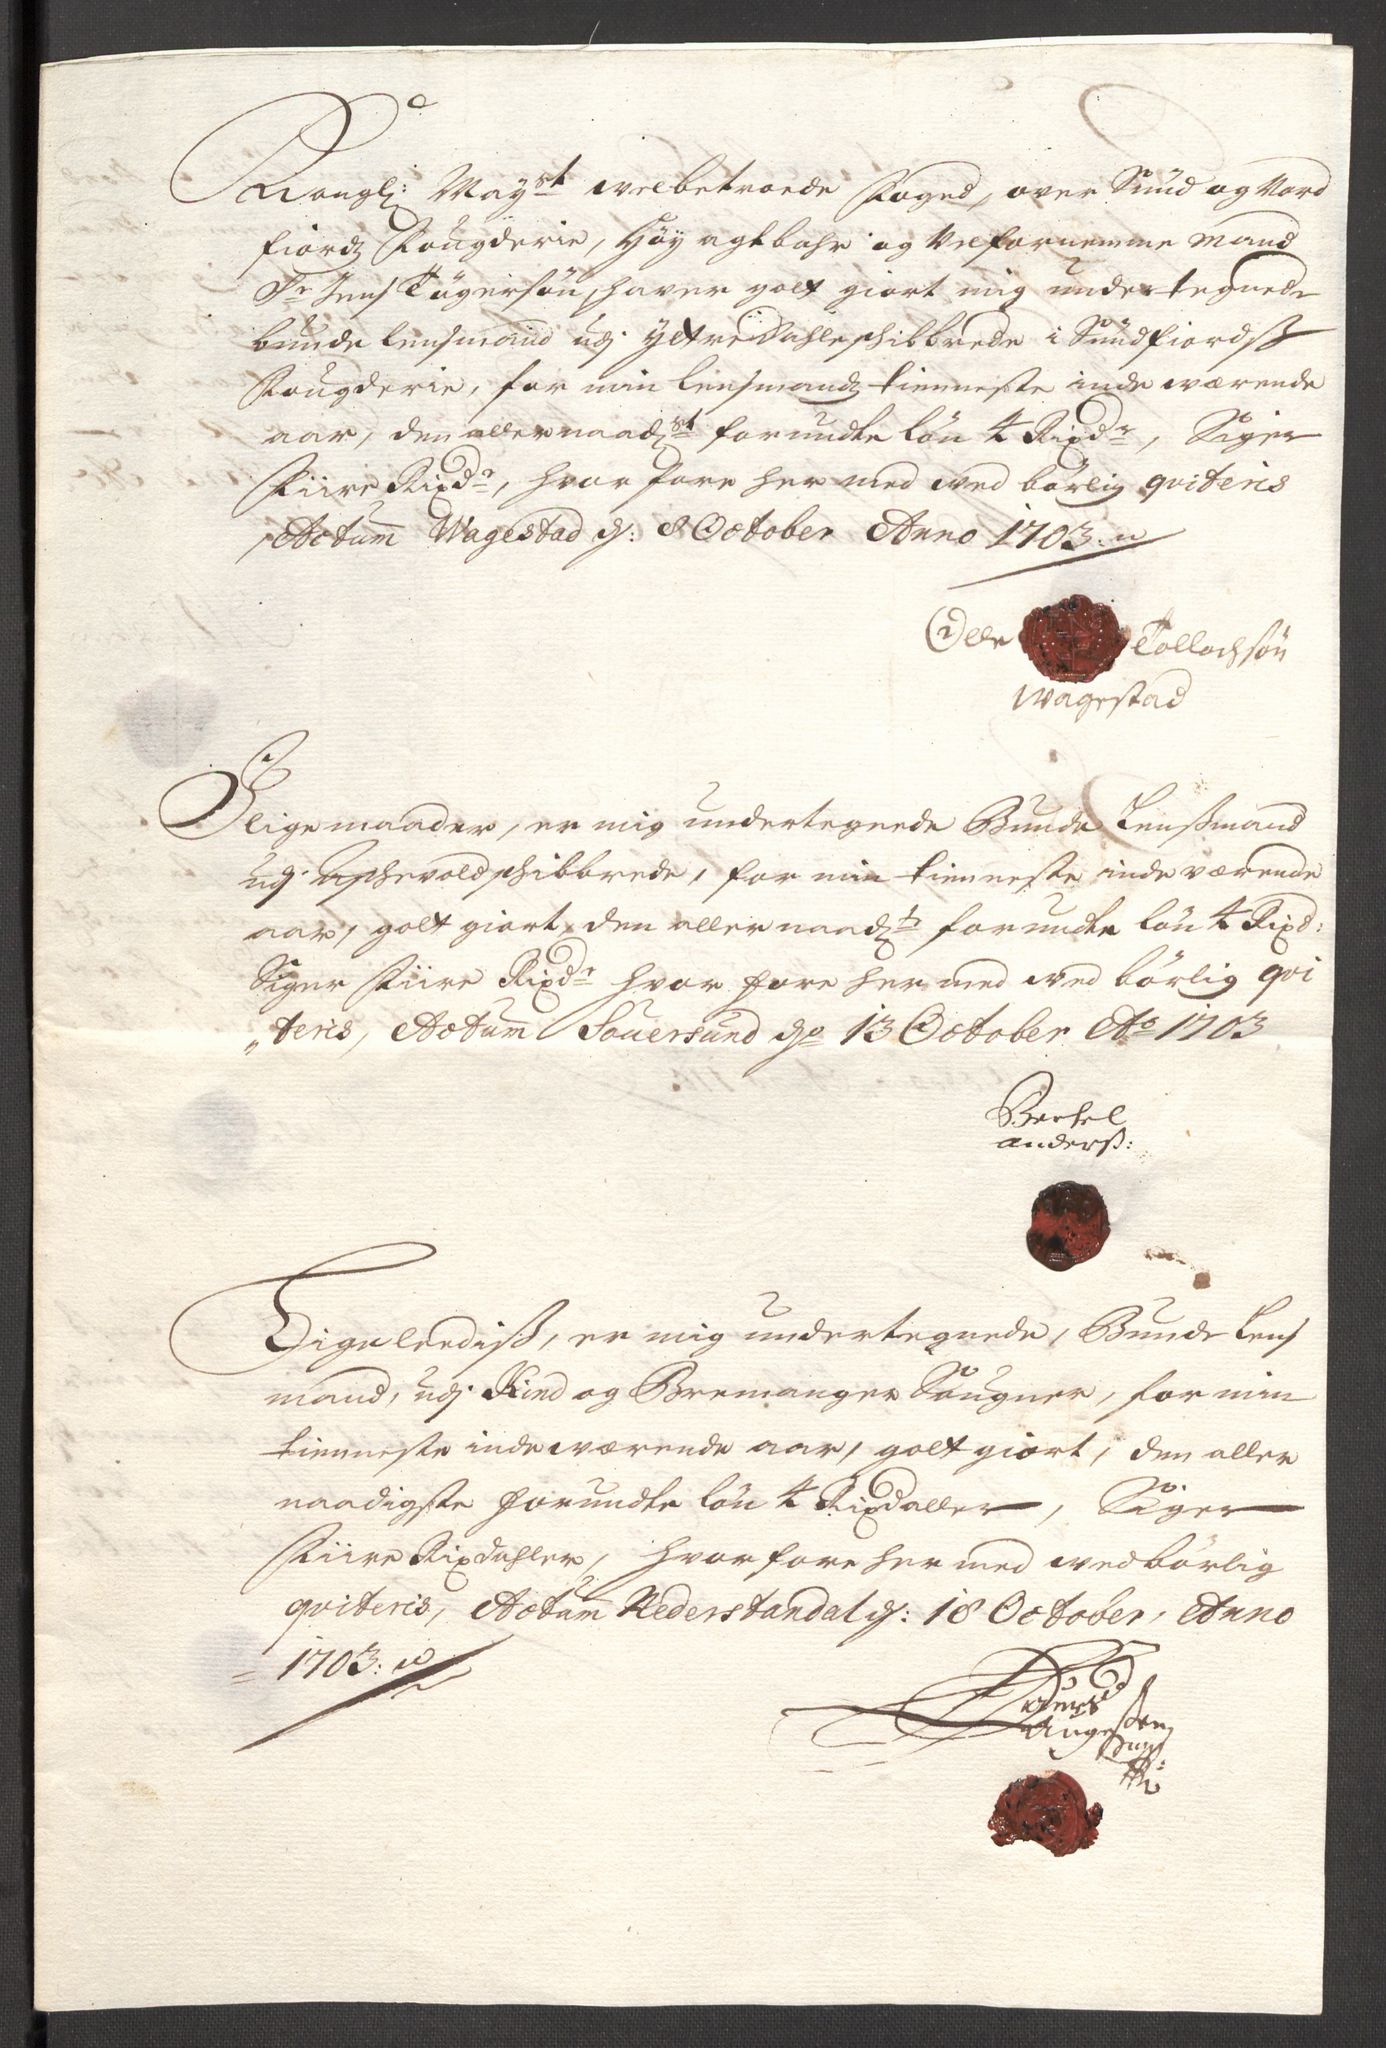 Kongl: May.st velbetroede Foged, over Sund og Nord
fiords Fougderie, Høy agtbahr og Velfornemme Mand
Sr. Jens Tøgersøn, haver gott giort mig undertegnede
bunde lensmand udj Yttre Dahle schibbrede i Sundfiordsß
Fougderie, for min lensmands tienneste inde værende
aar, den allernaadst. forundte løn 4 Rixdr., Siger
Fiire Rixdr., hvor fore her med ved børlig qviteris
Actum Wagestad d: 8 October Anno 1703:
Olle Tollochsøn
Wagestad
I lige maader, er mig undertegnede Bunde Lenßmand
udj Aschevold schibbrede, for min tienneste inde værende
aar, gott giort, den aller naadst. forundte løn 4 Rixd:
Siger Fiire Rixdr. hvor fore her med ved børlig qvi
teris, Actum Sauersund do 13 October Ao 1703
Bertel
anderß:
Ligeleediß, er mig undertegnede, Bunde Lens
mand, udj Kind og Bremanger Sougner, for min
tienneste inde værende aar, gott giort, den aller
naadigste forundte løn 4 Rixdaller, Siger
Fiire Rixdahler, hvor fore her med ved børlig
qviteris, Actum Rederstandal d: 18 October, Anno
1703: